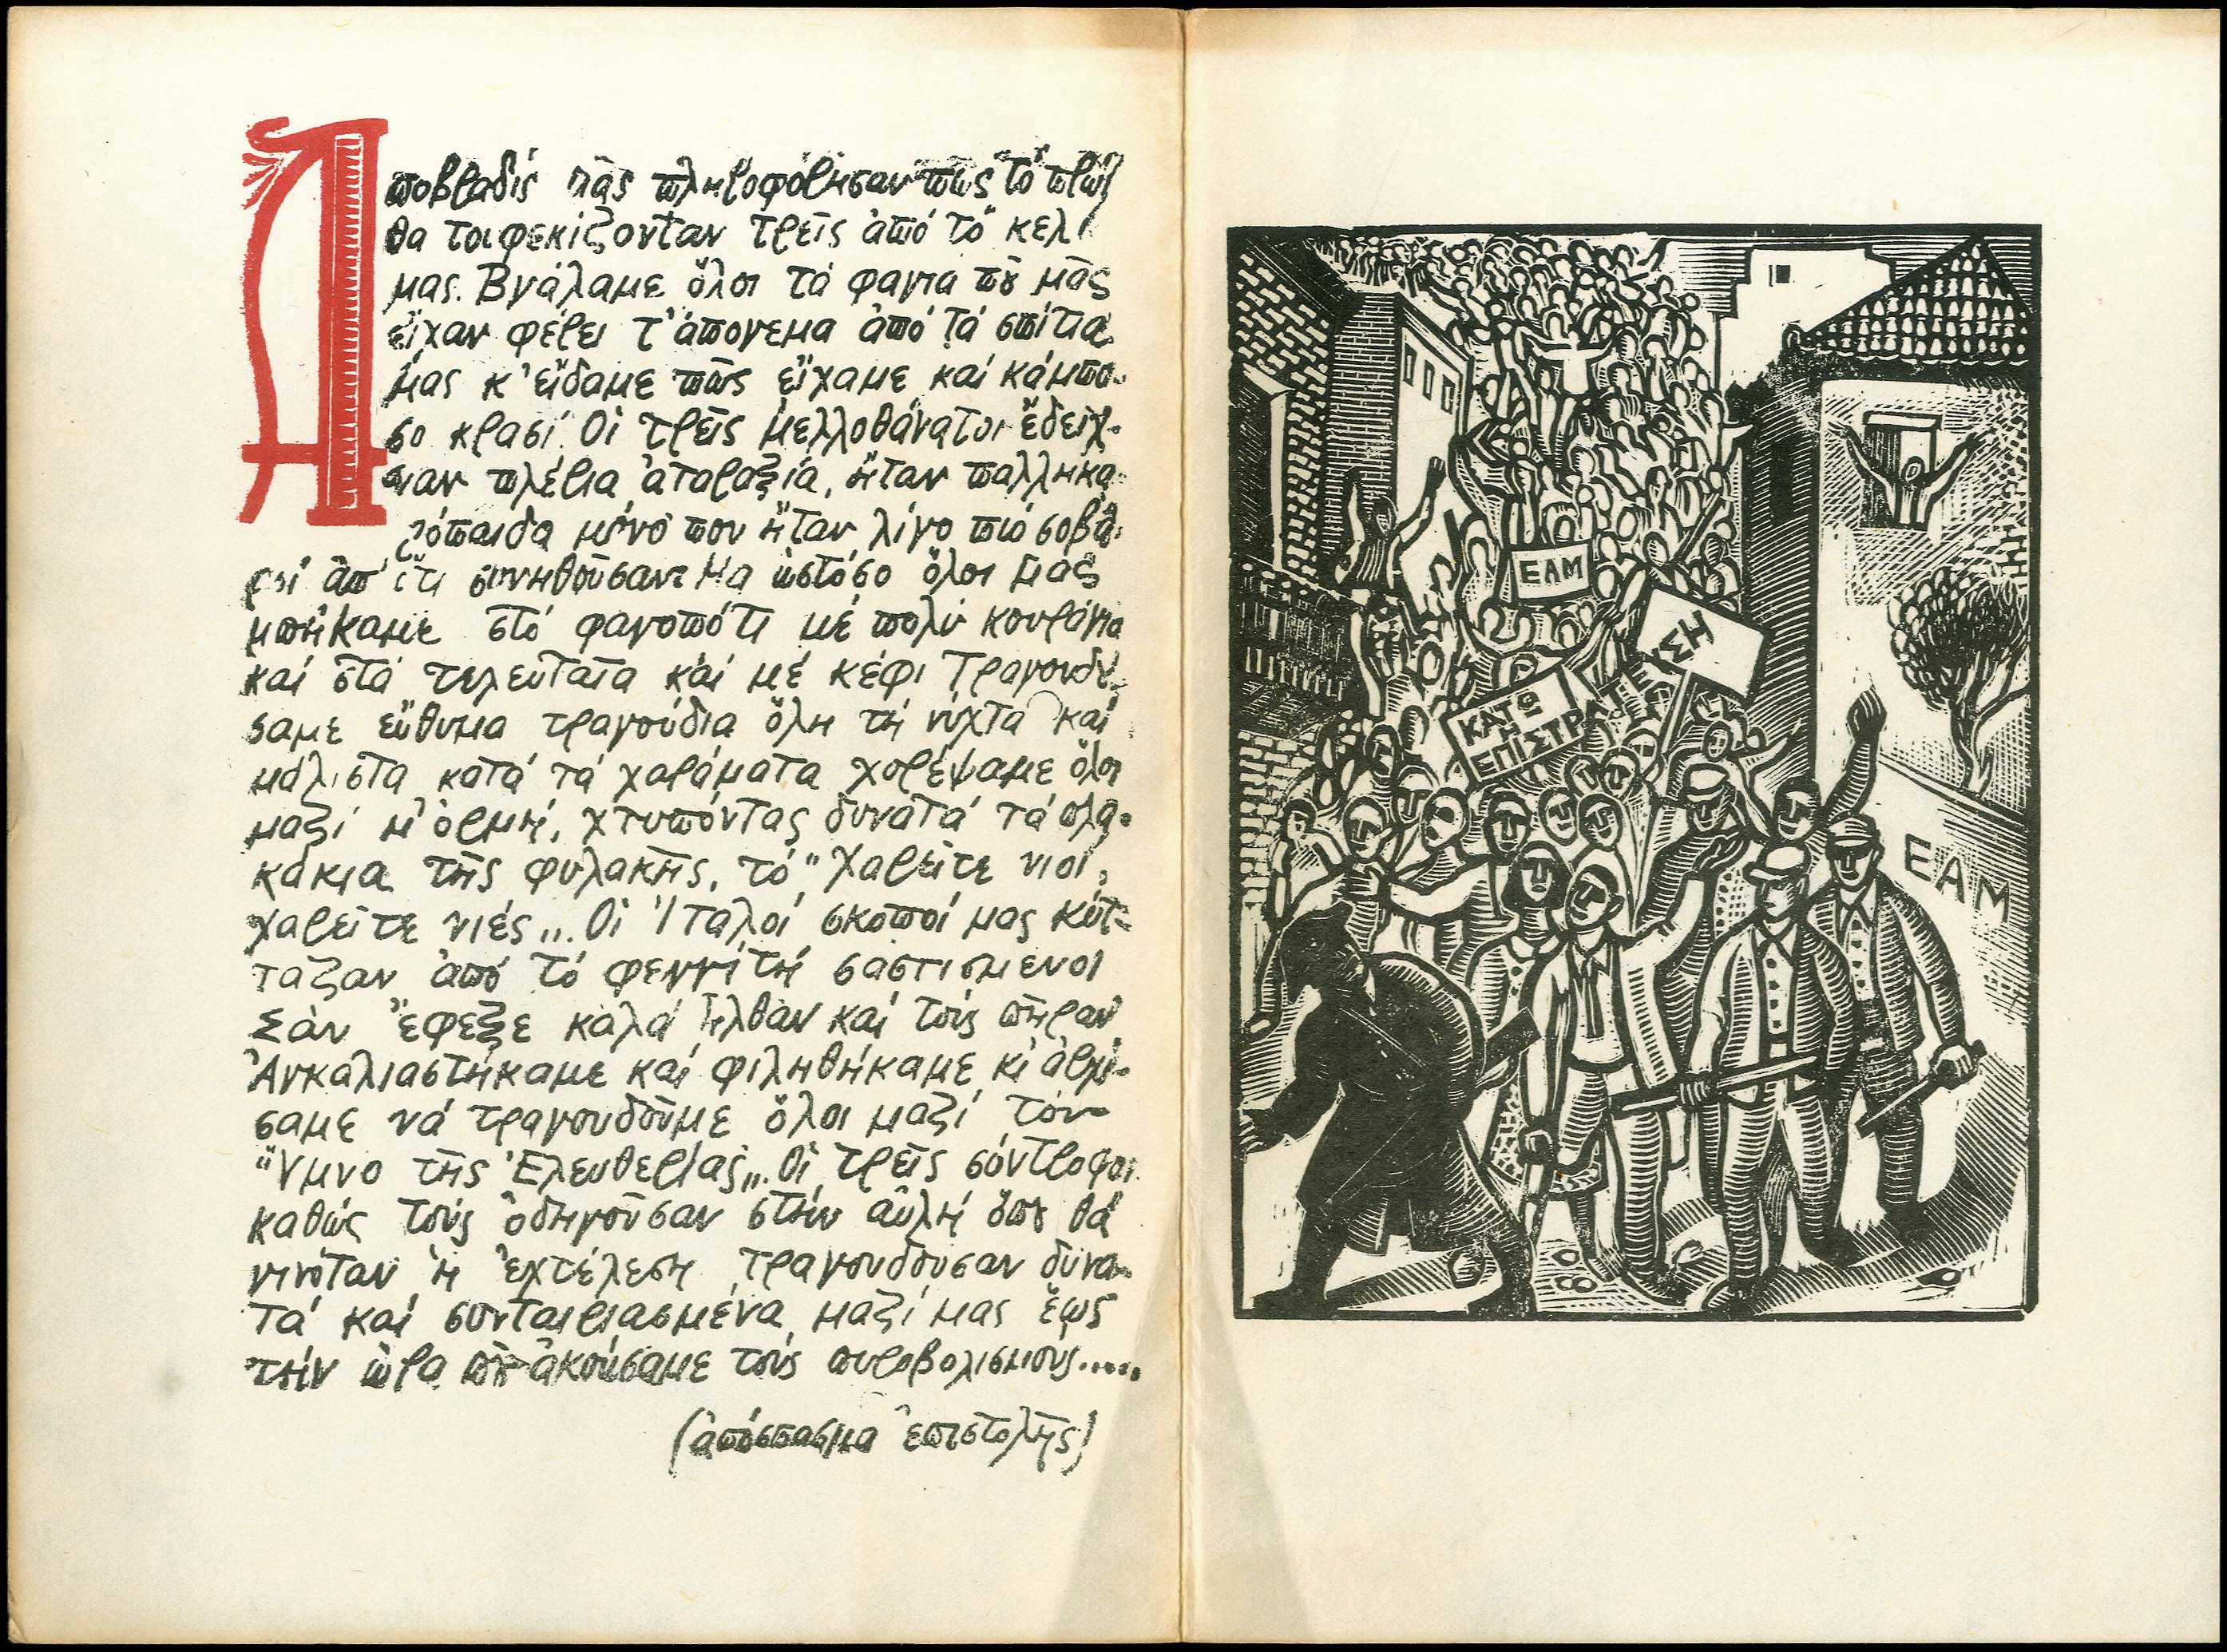 Αποβραδίς μᾶς πληροφόρησαν πῶς τό πρωΐ
θα τουφεκίζονταν τρεῖς ἀπό τό κελί
μας. Βγάλαμε ὅλοι τά φαγιά πȣ̃ μᾶς
εἶχαν φέρει τ' ἀπόγεμα ἀπό τά σπίτια
μας κ' εἴδαμε πῶς εἴχαμε καί κάμπο-
σο κρασί. Οἱ τρεῖς μελλοθάνατοι ἔδειχ-
ναν πλέρια ἀταραξία, ἦταν παλληκα-
ρόπαιδα μόνο που ἦταν λίγο πιό σοβα-
ροί ἀπ' ὅτι συνηθοῦσαν. Μα ὡστόσο ὅλοι μας
μπήκαμε στό φαγοπότι μέ πολύ κουράγιο
καί στά τελευταῖα καί μέ κέφι τραγουδή-
σαμε εὔθυμα τραγούδια ὅλη τή νύχτα καί
μάλιστα κατά τά χαράματα χορέψαμε ὅλοι
μαζί μ' ὁρμή, χτυπόντας δυνατά τά πλα-
κάκια τῆς φυλακῆς, τό "Χαρεῖτε νιοί,
χαρεῖτε νιές„. Οἱ Ἰταλοί σκοποί μας κύτ-
ταζαν ἀπό τό φεγγίτη σαστισμενοι
Σάν ἔφεξε καλά ἦλθαν καί τούς πῆραν
Ἀγκαλιαστήκαμε καί φιληθήκαμε κι ἀρχί-
σαμε νά τραγουδοῦμε ὅλοι μαζί τόν
"Ὕμνο τῆς Ἐλευθερίας„. Οἱ τρεῖς σύντροφοι
καθώς τούς ὁδηγοῦσαν στήν αὐλή ὅπȣ θά
γινόταν ἡ ἐχτέλεση τραγουδοῦσαν δυνα-
τά καί συνταιριασμένα μαζί μας ἕως
τήν ὥρα πȣ̃ ἀκούσαμε τούς πυροβολισμούς.....
(ἀπόσπασμα ἐπιστολῆς)
ΕΑΜ
ΚΑΤΩ
Η
ΕΠΙΣΤΡΑΤΕΥΣΗ
ΕΑΜ